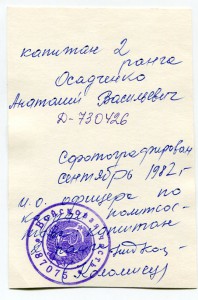 капитан 2
ранга
Осадченко
Анатолий Васильевич
Д-730426
Сфотографирован
сентябрь 1982 г.
и.о. офицера по
капитан
Коломиец
87076